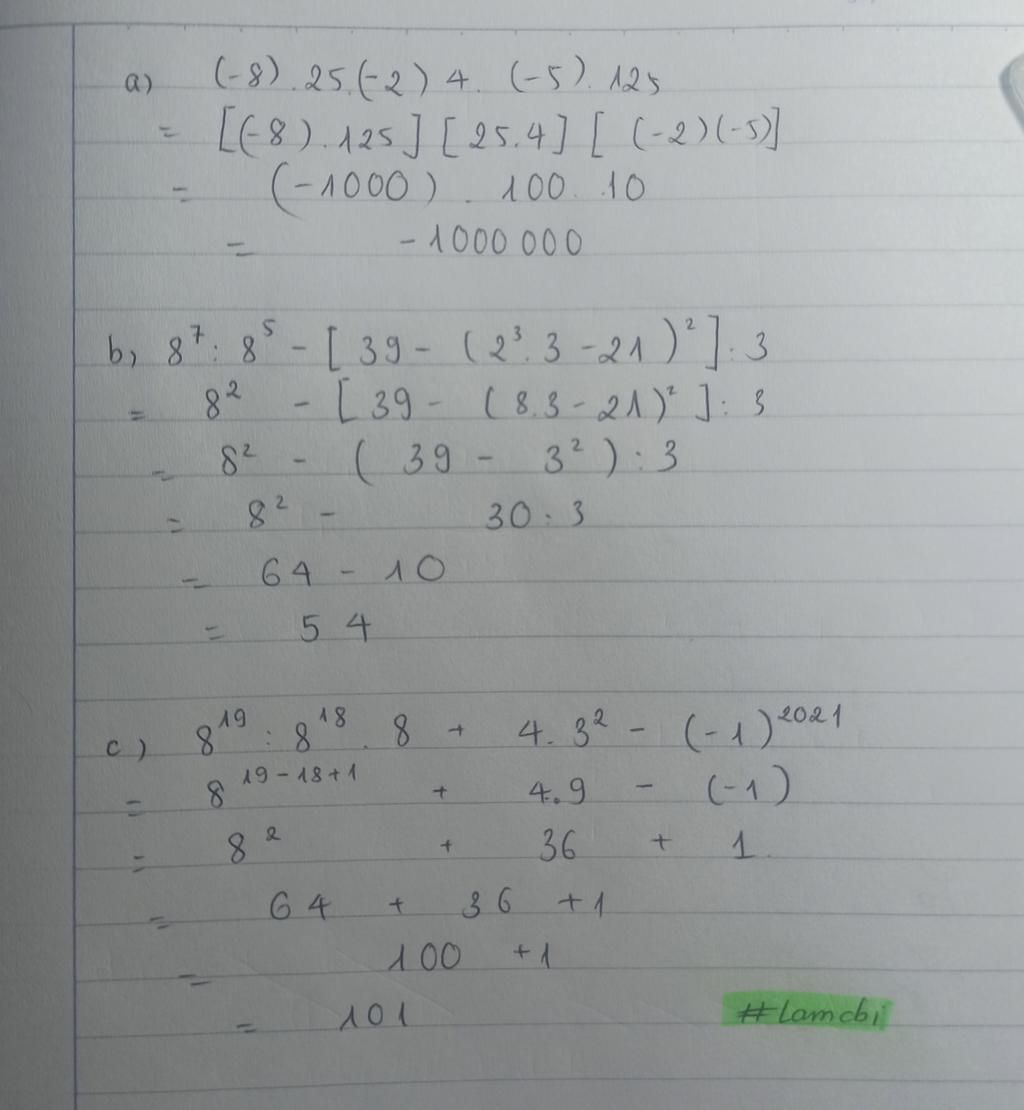 a) (-8) . 25 . (-2) 4 . (-5) . 125
= [(-8) . 125] [25.4] [(-2)(-5)]
= (-1000) . 100 . 10
= -1000 000
b, 8⁷ : 8⁵ - [39 - (2³. 3 - 21)²] : 3
= 8² - [39 - (8.3 - 21)²] : 3
= 8² - (39 - 3²) : 3
= 8² - 30 : 3
= 64 - 10
= 54
c) 8¹⁹ : 8¹⁸ . 8 + 4. 3² - (-1)²⁰²¹
= 8¹⁹⁻¹⁸⁺¹ + 4.9 - (-1)
= 8² + 36 + 1
= 64 + 36 + 1
= 100 + 1
= 101
#Lamcbi